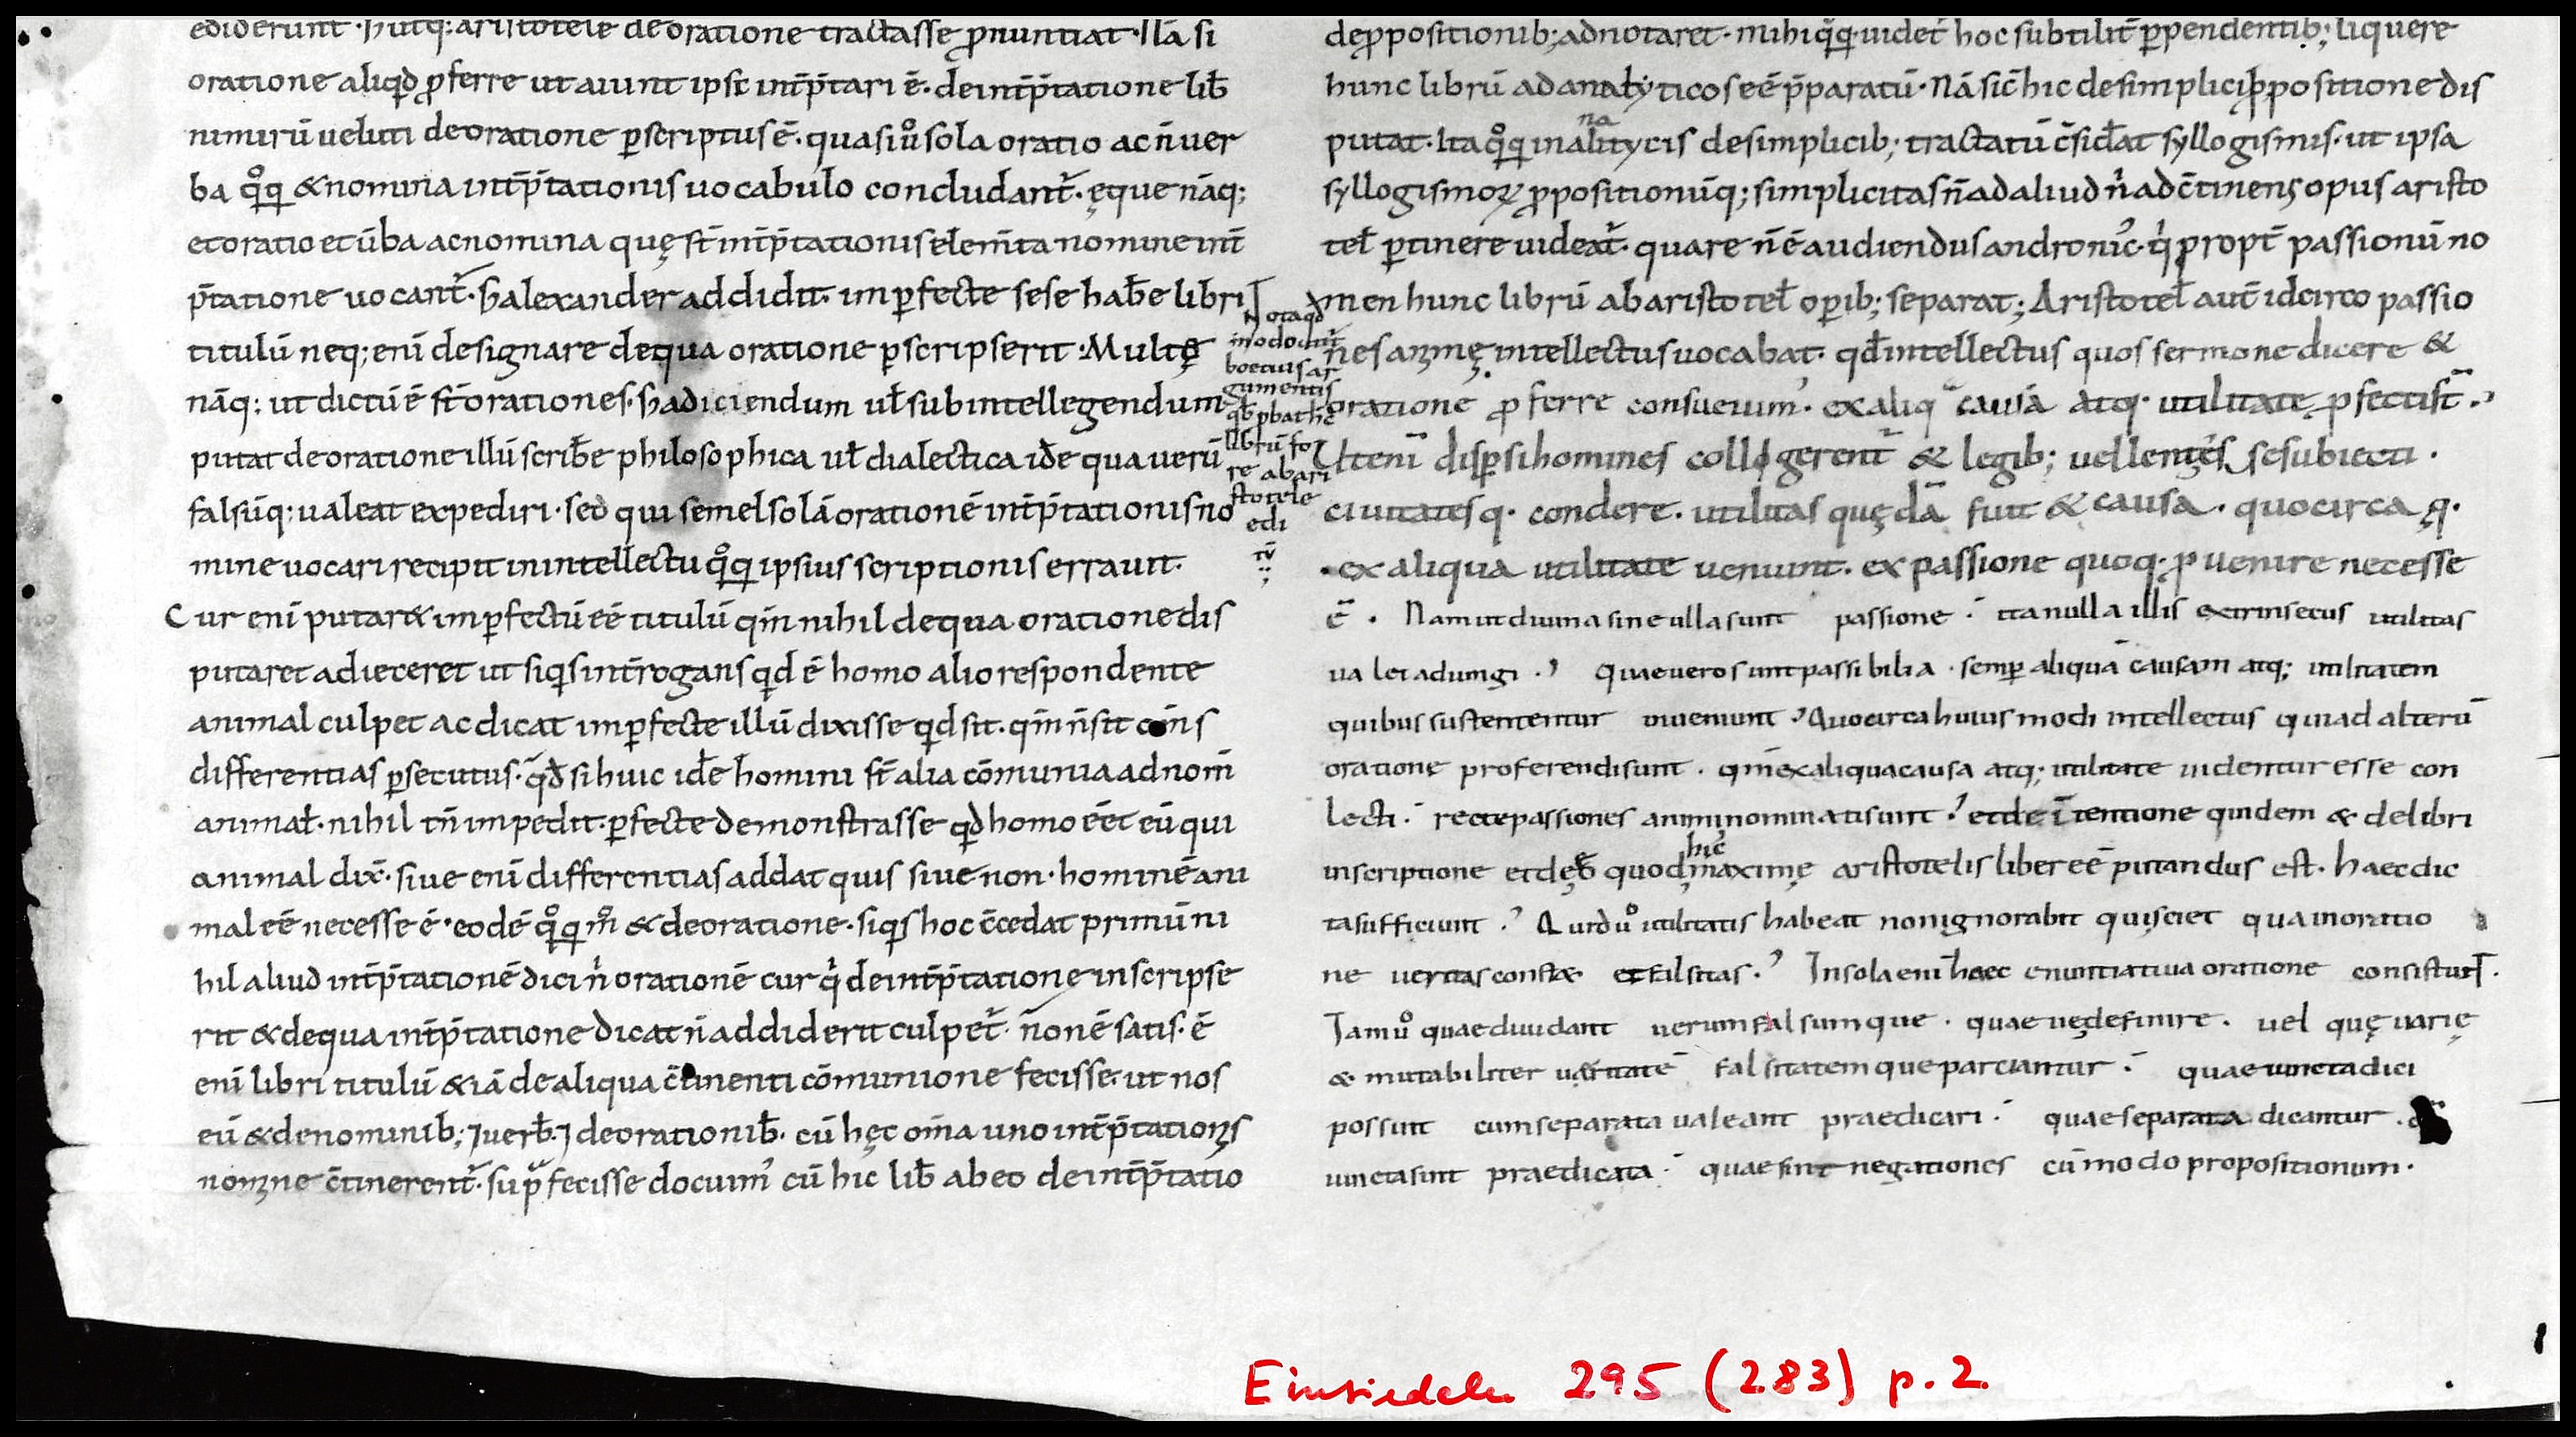 ediderunt · hutq: aristotele de oratione tractasse ꝓnuntiat · Nā si
oratione aliqđ ꝓferre ut aiunt ipsē intp̄tari ē · de intp̄tatione lib̄
nimirū veluti de oratione ꝑscriptus ē · quasi ůsola oratio ac n̄ ver
ba qͦq &nomina intp̄tationis vocabulo concludant̄ · ęque nāq;
et oratio et ūba ac nomina quę st̄ intp̄tationis elem̄ta nomine int̄
p̄tatione vocant̄ · h̄ alexander addidit · imꝑfecte sese hab̄e libri
titulū neq; eni designare dequa oratione ꝑscripserit · Multę
nāq; ut dictū ē st̄ orationes · h̄ adiciendum uł subintellegendum
putat de oratione illū scrib̄e philosophica uł dialectica id̄e qua verū
falsūq; valeat expediri · sed qui semel solā orationē intp̄tationis no
mine vocari recipit in intellectu qͦq ipsius scriptionis erravit ·
Cur enī putar& imꝑfectū eē titulū qm̄ nihil dequa oratione dis
putaret adieceret ut siqis int̄rogans qid ē homo alio respondente
animal culpet ac dicat imꝑfecte illū dixisse qid sit · qm̄ n̄ sit om̄s
differentias ꝑsecutus · qđ si huic id̄e homini st̄ alia cōmunia ad nom̄
animał · nihil tn̄ impedit · ꝑfecte demonstrasse qid homo eēt eū qui
animal dix̄ · sive eni differentias addat quis sive non · hominē ani
mal eē necesse ē · eodē qͦq mͦ & de oratione · siqis hoc c̄cedat primū ni
hil aliud intp̄tationē dici n̄ orationē cur qi de intp̄tatione inscripse
rit & dequa intp̄tatione dicat n̄ addiderit culpet̄ · n̄ on ē satis · ē
eni libri titulū & iā de aliqua c̄tinenti cōmunione fecisse · ut nos
eū & de nominib; ⁊ verb̄ · ⁊ de orationib̄ · cū hęc om̄a uno intp̄tationis
nomine c̄tinerent̄ · sup̄ fecisse docuim' cū hic lib̄ ab eo de intp̄tatio
Nota qd
in odoc̄
boetius ar
gumentis
qb ꝓbat hc
librū fo
re abari
stotele
edi
tū
de ꝓpositionib; adnotaret · mihi qͦq videt̄ hoc subtilit̄ ꝑpendentib; liquere
hunc librū ad analyticos eē p̄paratū · Nā sic̄ hic de simplici ꝓpositione dis
putat · Ita qͦq in alitycis de simplicib; tractatū c̄sid̄at syllogismis · ut ipsa
na
syllogismoꝝ ꝓpositionūq; simplicitas n̄ ad aliud n̄ ad c̄tinens opus aristo
teł ꝑtinere videat̄ · quare n̄ ē audiendus andronic' · qi propt̄ passionū no
men hunc librū ab aristoteł oꝑib; separat; Aristoteł aut̄ idcirco passio
nes animę intellectus vocabat · qđ intellectus quos sermone dicere &
oratione ꝓferre consuevim' · ex aliqͣ causā atq · utilitate ꝓfecti st̄ ·
Et enī disꝑsi homines colligerent̄ & legib; vellent ēs se subiecti ·
civitatesq · condere · utilitas quęda̅ fuit & causa · quocirca ęq ·
ex aliqua utilitate veniunt · ex passione quoq · ꝓvenire necesse
ē · Nam ut divina sine ulla sunt passione · ita nulla illis extrinsecus utilitas
valet adiungi · Quae vero sunt passibilia · semꝑ aliquā causam atq; utilitatem
quibus sustententur inveniunt · Quocirca huius modi intellectus qui ad alterū
oratione proferendi sunt · qm̄ ex aliqua causa atq; utilitate videntur esse con
lecti · recte passiones animi nominati sunt · et de ītentione quidem & de libri
hic
inscriptione et de eo quod maximę aristotelis liber eē putandus est · haec dic
ta sufficiunt · Quid ů utilitatis habeat non ignorabit qui sciet qua in oratio
ne veritas const& et falsitas · In sola eni haec enuntiativa oratione consistunt ·
Iam ů quae dividant verum falsumque · quae vę definire · vel quę varię
& mutabiliter varitatē falsitatemque parciantur · quae iuncta dici
possunt cum separata valeant praedicari · quae separata dicantur ·
iuncta sint praedicata · quae sint negationes cū modo propositionum ·
Einsiedeln 295 (283) p. 2